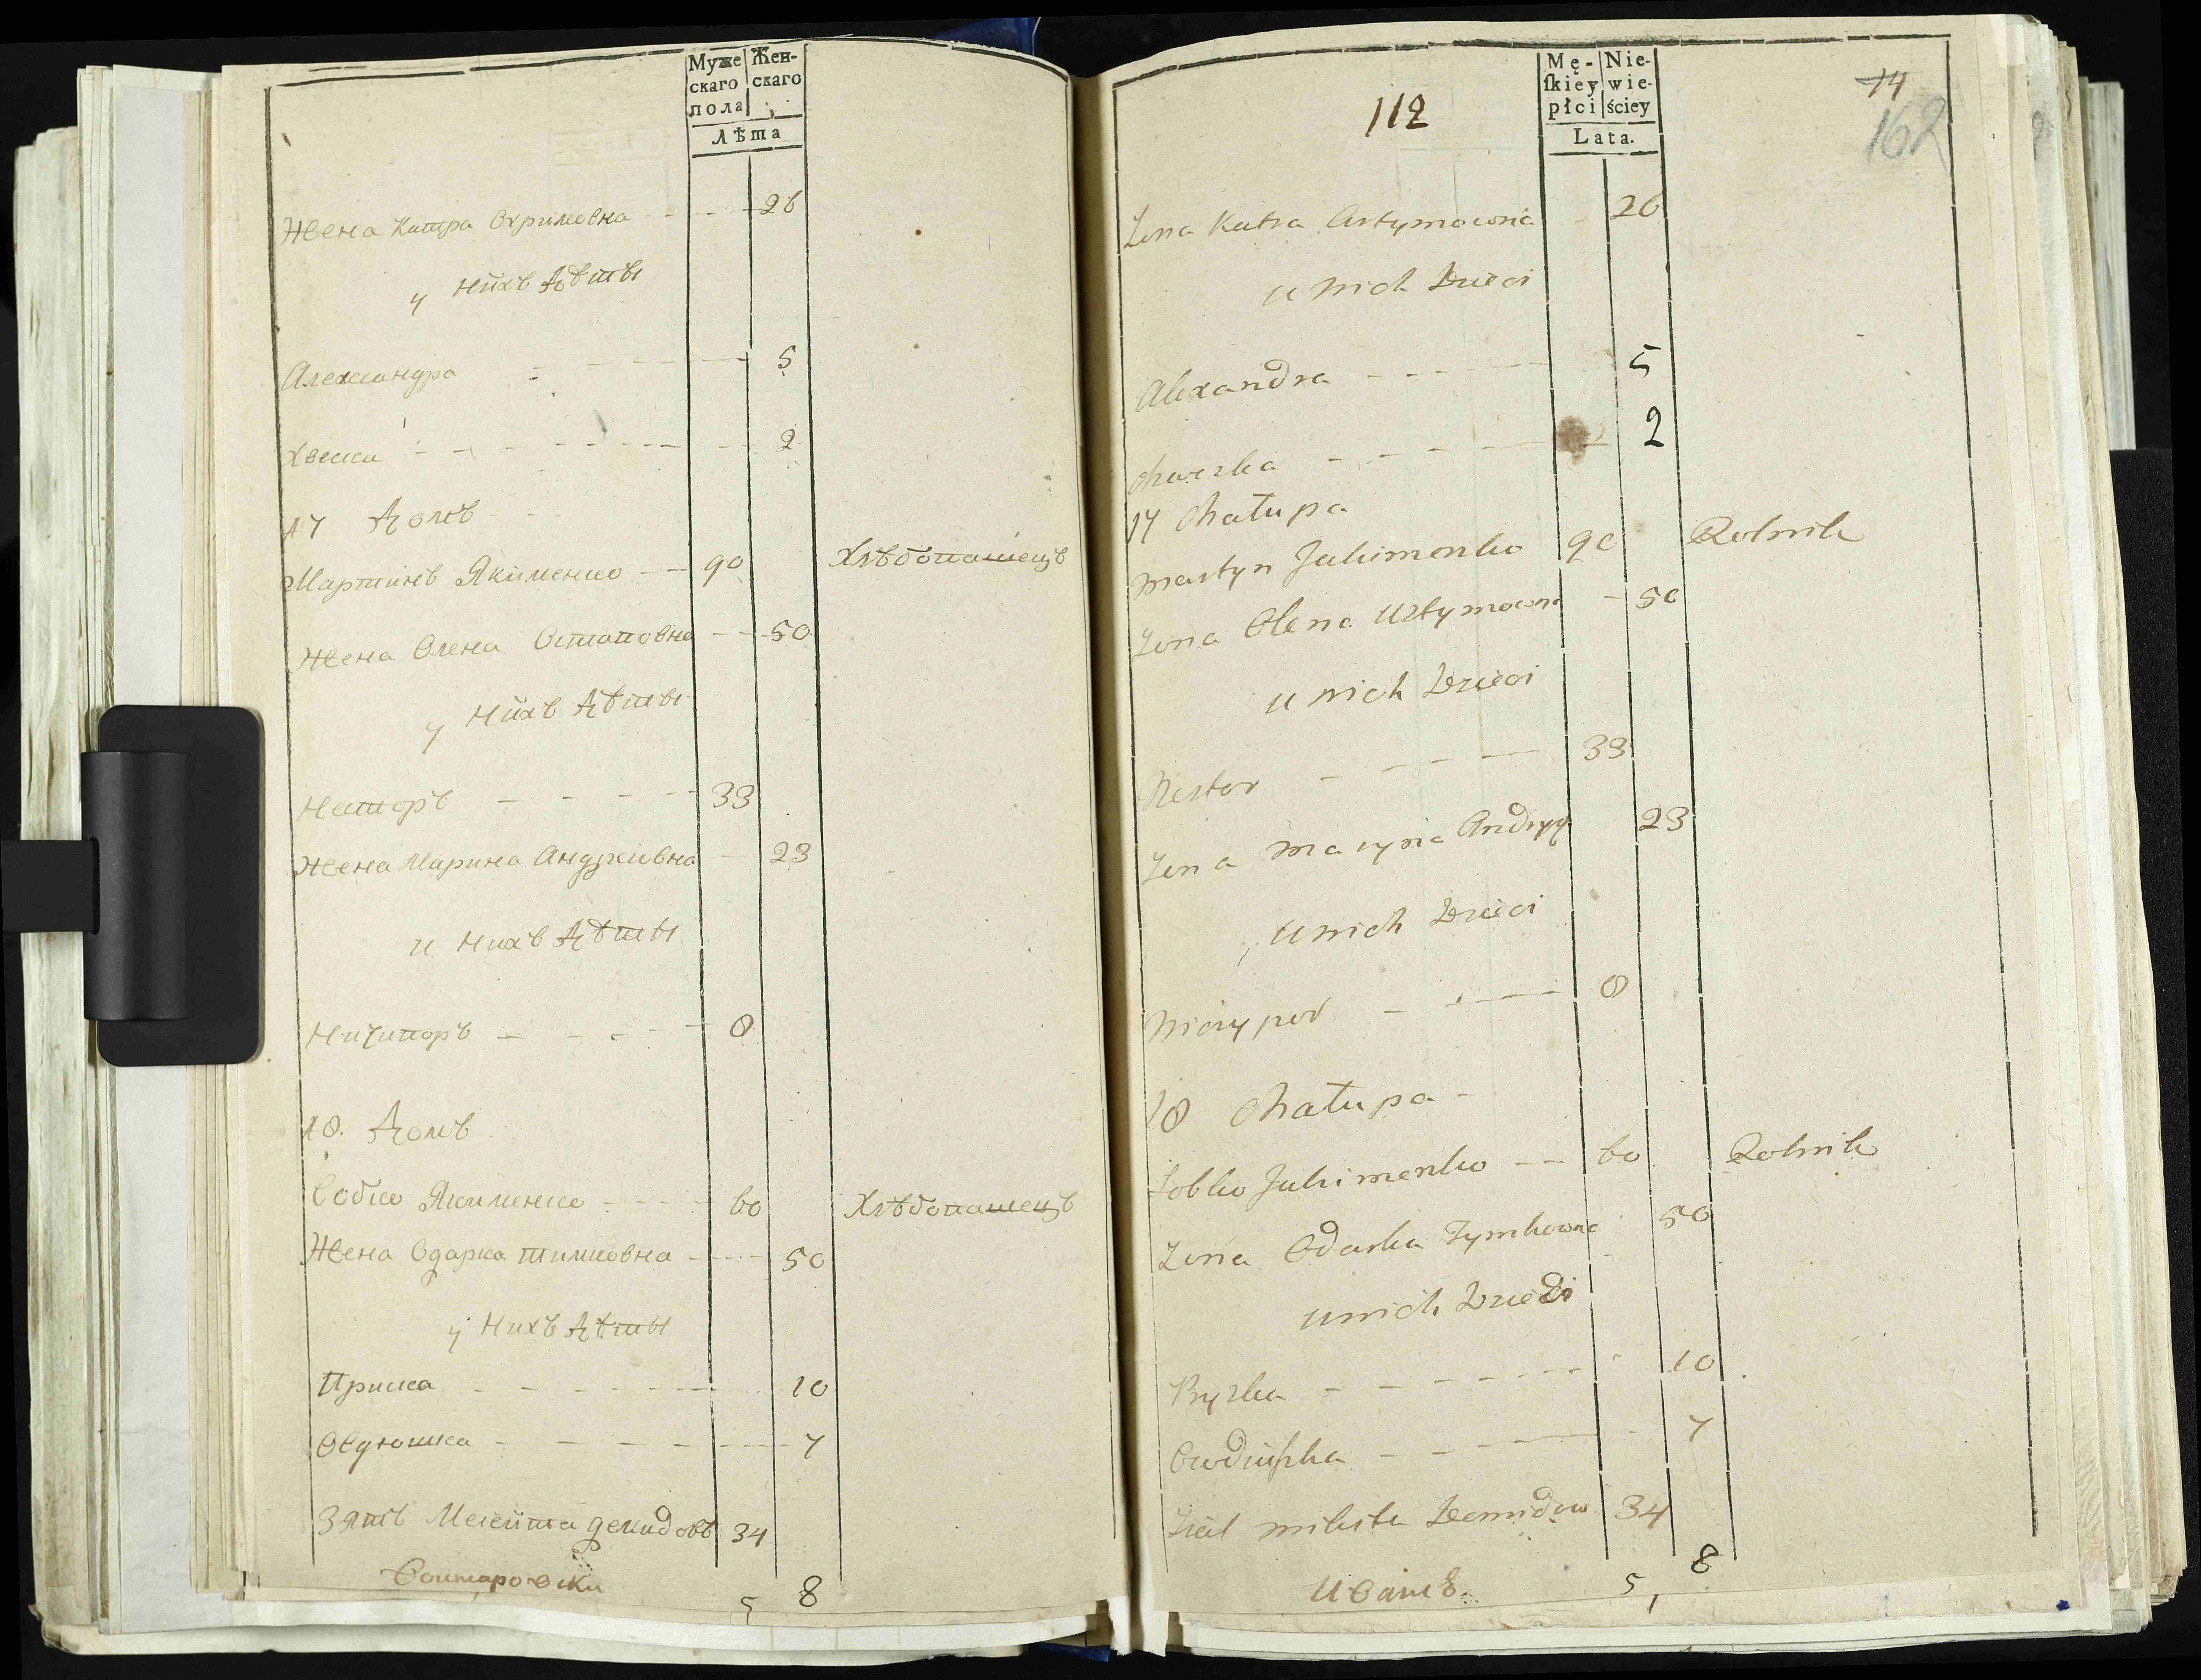 Муже Жен-
скаго скаго
пола
Лѣта
Жена Катра Охримовна 26
у нихъ Дѣти
Александра 5
Хвеска 2
17 Домъ
Мартинъ Якименко 90 Хлѣбопашецъ
Жена Олена Остаповна 50
у Нихъ Дѣти
Несторъ 33
Жена Марина Андрѣивна 23
и Нихъ Дѣти
Ничипоръ 8
18. Домъ
Собко Якименко 60 Хлѣбопашецъ
Жена Одарка тимковна 50
у Нихъ Дѣти
Приска 10
Овдюшка 7
Зять Микита демидовъ 34
5 8
Mę- Nie-
ſkiey wie-
płci ściey
Lata.
112
14
162
Zona Katra Artymowna 26
u nich Dzieci
Alexandra 5
Chweska 2
17 Chałupa
Martyn Jakimenko 90 Rolnik
Zona Olena Ustymowna 50
u nich Dzieci
Nestor 33
Zona Maryna Andryy 23
u nich Dzieci
Niczypor 8
18 Chałupa
Sobko Jakimenko 60 Rolnik
Zona Odarka Tymkowna 50
u nich Dzieci
Pryska 10
Owdiuszka 7
Zięć Mikita Demidow 34
5 8